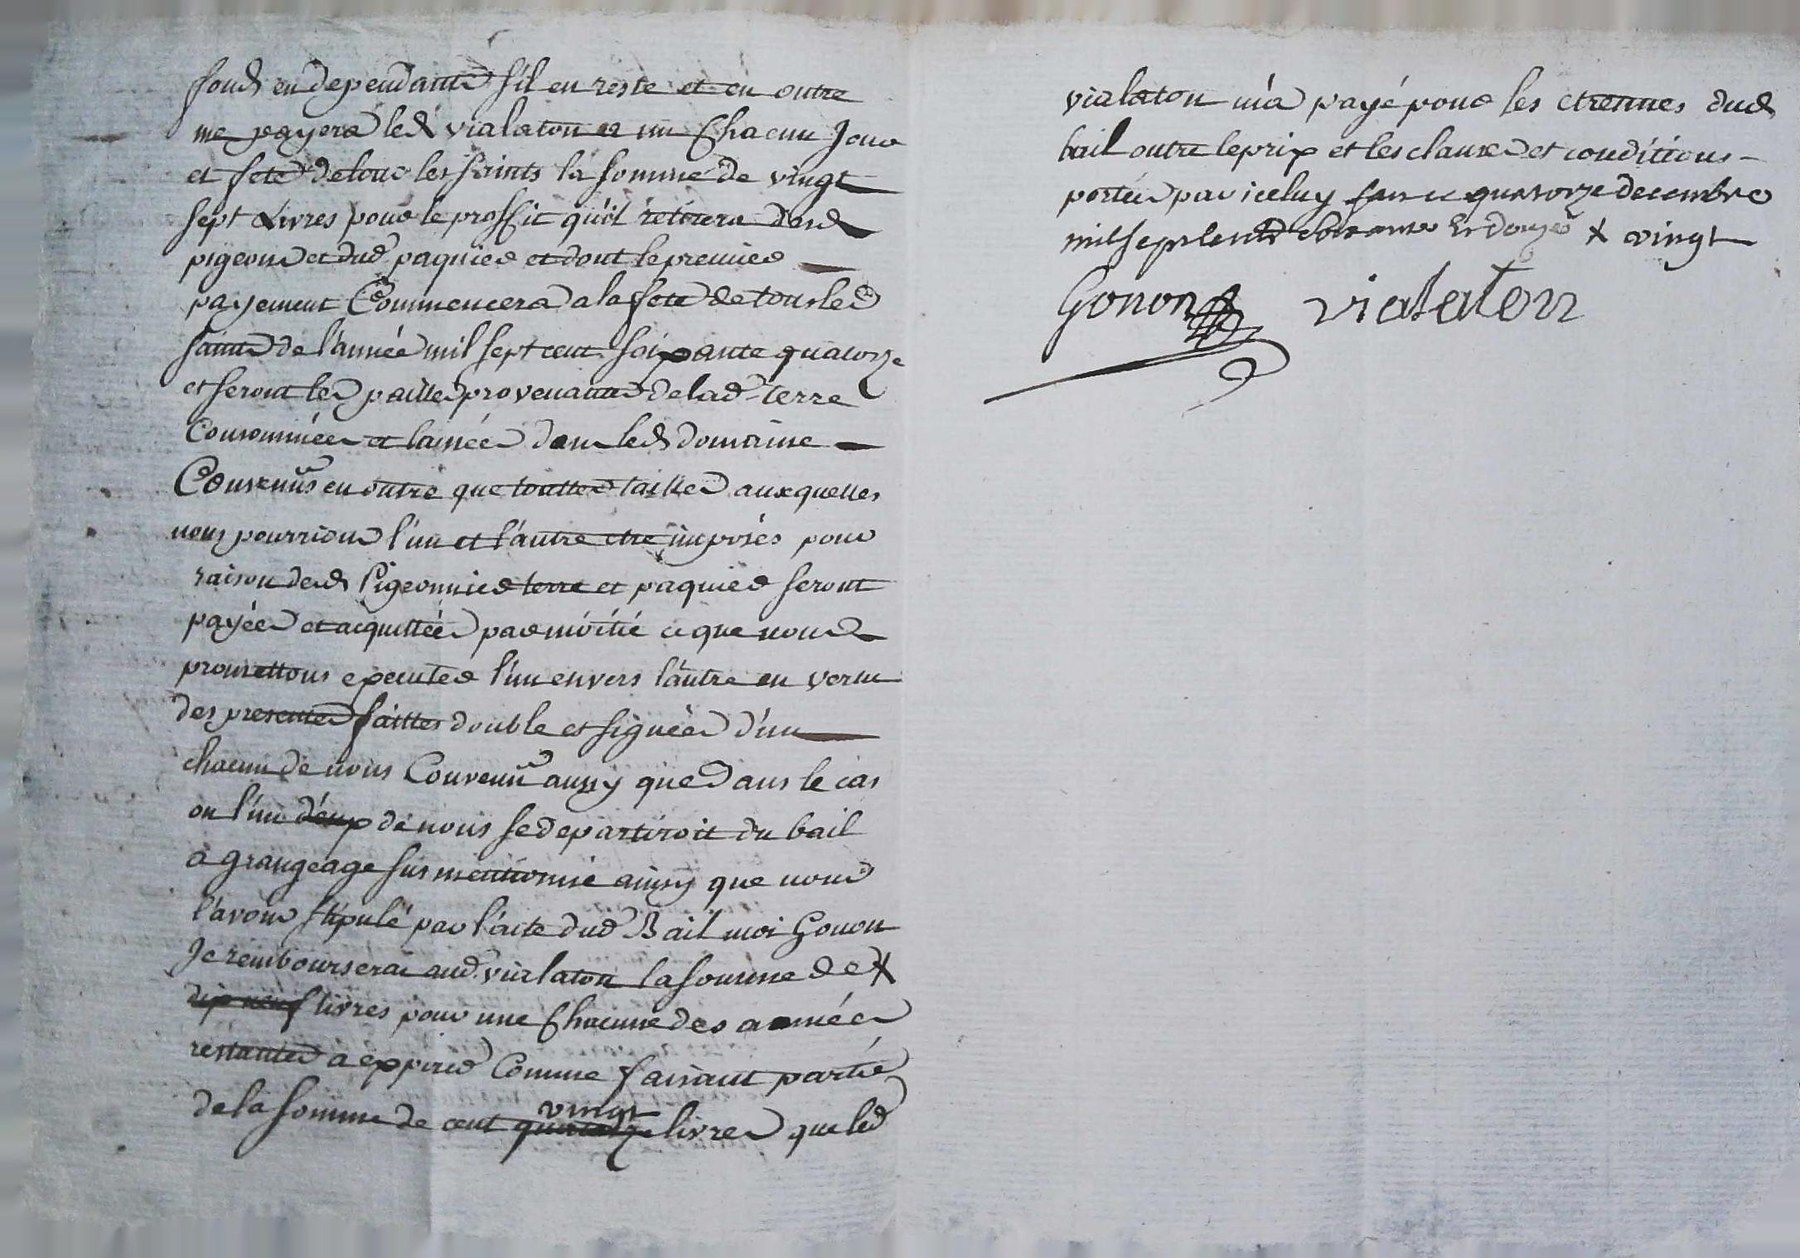 fonds en dependants s'il en reste et en outre
me payera led vialaton en un Chacun Jour
et fete de tous les saints la somme de vingt
sept Livres pour le proffit qu'il retirera desd
pigeons et dud paquier et dont le premier
payement Commencera a la fete de tous les
saints de l'année mil sept cent soixante quatorze
et seront les pailles provenantes de lad. terre
Consommées et laissées dans led domaine
Convenus en outre que touttes tailles auxquelles
nous pourrions l'un et l'autre etre imposés pour
raison desd Pigeonnier terre et paquier seront
payées et acquittées par moitié ce que nous
promettons executer l'un envers l'autre en vertu
des presentes faittes double et signées d'un
chacun de nous Convenu aussy que Dans le cas
ou l'un d'eux de nous se departiroit du bail
a grangeage sus mentionné ainsy que nous
l'avons stipulé par l'acte dud Bail moi Gonon
Je rembourserai aud. vialaton la somme de X
dix neuf livres pour une Chacune des années
restantes a expirer Comme faisant partie
vingt
de la somme de cent livres que led
vialaton m'a payé pour les etrennes dud
bail outre le prix et les clauses et conditions -
portées par iceluy fait ce quatorze decembre
mil sept cents soixante et douze X vingt
Gonon vialaton